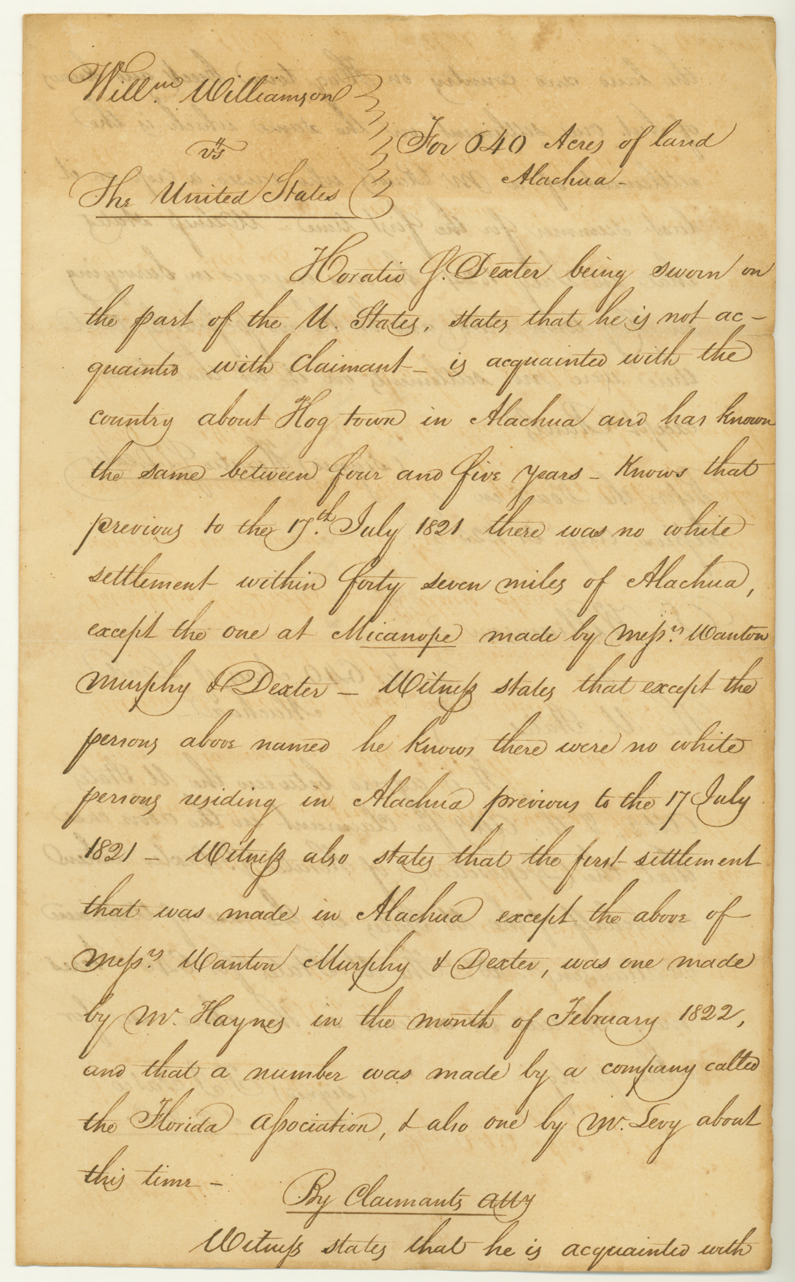 Willm. Williamson
vs
The United States
For 640 Acres of land
Alachua -
Horatio S. Dexter being sworn on
the part of the U. States, states that he is not ac-
quainted with Claimant - is acquainted with the
country about Hog town in Alachua and has known
the same between four and five years - Knows that
previous to the 17th. July 1821 there was no white
settlement within forty seven miles of Alachua,
except the one at Micanope made by Messrs. Wanton
Murphy & Dexter - Witness states that except the
persons above named he knows there were no white
persons residing in Alachua previous to the 17 July
1821 - Witness also states that the first settlement
that was made in Alachua except the above of
Messrs. Wanton Murphy & Dexter, was one made
by Mr. Haynes in the month of February 1822,
and that a number was made by a company called
the Florida Association, & also one by Mr. Levy about
this time -
By Claimants atty
Witness states that he is acquainted with